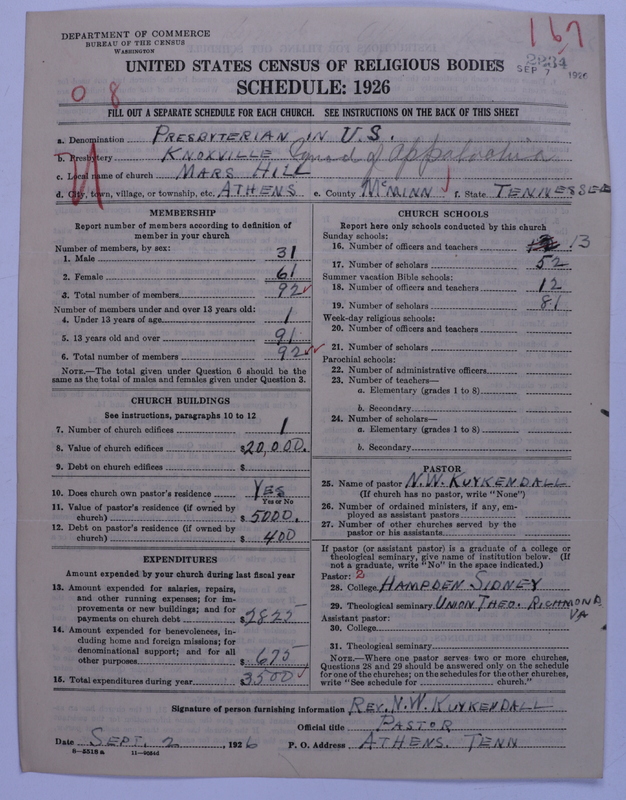 DEPARTMENT OF COMMERCE
BUREAU OF THE CENSUS
WASHINGTON
167
2234
SEP 7 1926
UNITED STATES CENSUS OF RELIGIOUS BODIES
SCHEDULE: 1926
0 8
FILL OUT A SEPARATE SCHEDULE FOR EACH CHURCH. SEE INSTRUCTIONS ON THE BACK OF THIS SHEET
a. Denomination PRESBYTERIAN IN U.S.
b. Presbytery KNOXVILLE Synod of Appalachia
c. Local name of church MARS HILL
d. City, town, village, or township, etc. ATHENS e. County McMINN f. State TENNESSEE
MEMBERSHIP
Report number of members according to definition of
member in your church
Number of members, by sex:
1. Male 31
2. Female 61
3. Total number of members 92
Number of members under and over 13 years old:
4. Under 13 years of age 1
5. 13 years old and over 91
6. Total number of members 92
NOTE.—The total given under Question 6 should be the
same as the total of males and females given under Question 3.
CHURCH BUILDINGS
See instructions, paragraphs 10 to 12
7. Number of church edifices 1
8. Value of church edifices $20,000.
9. Debt on church edifices $
10. Does church own pastor's residence YES
Yes or No
11. Value of pastor's residence (if owned by
church) $ 5000.
12. Debt on pastor's residence (if owned by
church) $ 400
EXPENDITURES
Amount expended by your church during last fiscal year
13. Amount expended for salaries, repairs,
and other running expenses; for im-
provements or new buildings; and for
payments on church debt $2825
14. Amount expended for benevolences, in-
cluding home and foreign missions; for
denominational support; and for all
other purposes $ 675
15. Total expenditures during year $3500
CHURCH SCHOOLS
Report here only schools conducted by this church
Sunday schools:
16. Number of officers and teachers 13
17. Number of scholars 52
Summer vacation Bible schools:
18. Number of officers and teachers 12
19. Number of scholars 81
Week-day religious schools:
20. Number of officers and teachers
21. Number of scholars
Parochial schools:
22. Number of administrative officers
23. Number of teachers—
a. Elementary (grades 1 to 8)
b. Secondary
24. Number of scholars—
a. Elementary (grades 1 to 8)
b. Secondary
PASTOR
25. Name of pastor N.W. KUYKENDALL
(If church has no pastor, write "None")
26. Number of ordained ministers, if any, em-
ployed as assistant pastors
27. Number of other churches served by the
pastor or his assistants
If pastor (or assistant pastor) is a graduate of a college or
theological seminary, give name of institution below. (If
not a graduate, write "No" in the space indicated.)
Pastor: 2
28. College HAMPDEN SIDNEY
29. Theological seminary UNION THEO. RICHMOND
VA
Assistant pastor:
30. College
31. Theological seminary
NOTE.—Where one pastor serves two or more churches,
Questions 28 and 29 should be answered only on the schedule
for one of the churches; on the schedules for the other churches,
write "See schedule for church."
Signature of person furnishing information REV. N.W. KUYKENDALL
Official title PASTOR
Date SEPT. 2, 1926 P. O. Address ATHENS. TENN
8-5318 a 11-9034d